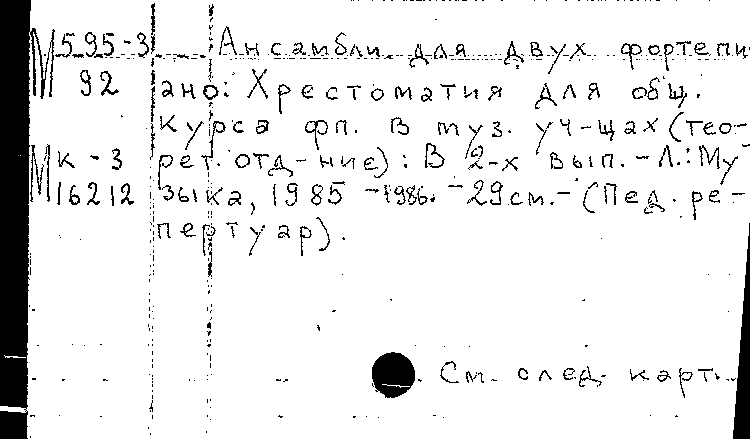 М 595-3 Ансамбли для двух фортепи
92 ано: Хрестоматия для общ.
курса фп. в муз. уч-щах (тео-
М к-3 рет. отд-ние): В 2-х вып. - Л.: Му
16212 зыка, 1985 -1986. -29см.- (Пед. ре-
пертуар).
См. след. карт.